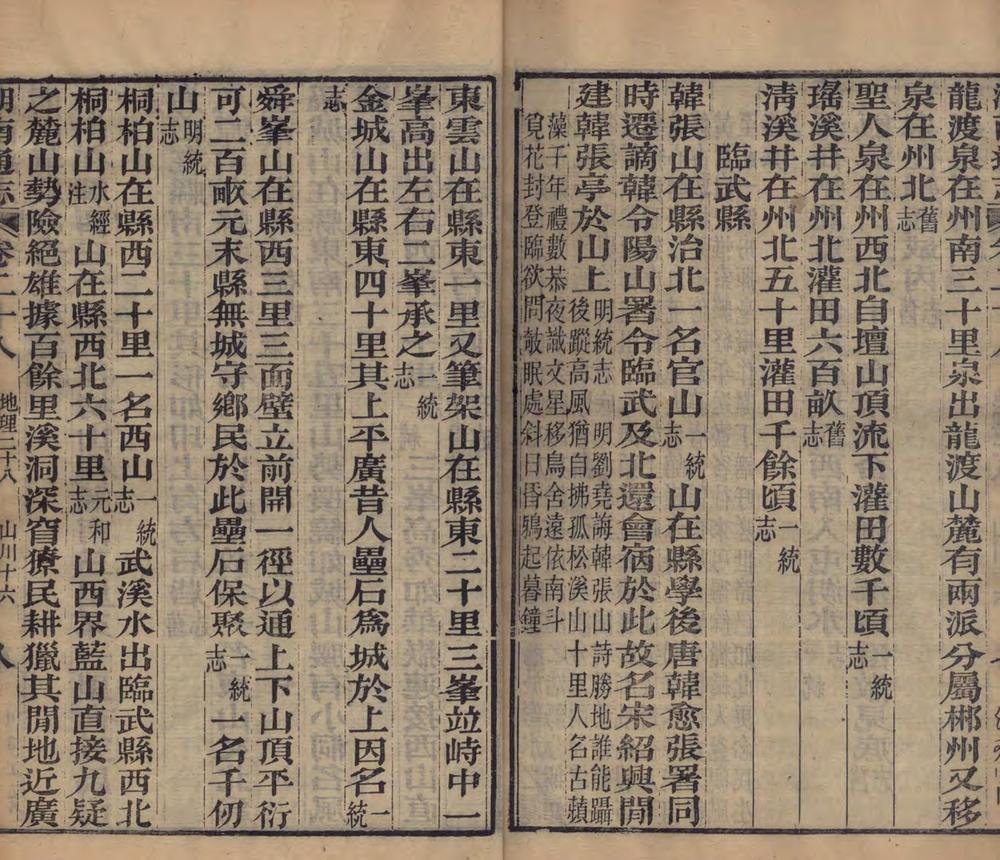 龍渡泉在州南三十里泉出龍渡山麓有兩派分屬郴州又移
泉在州北舊志
聖人泉在州西北自壇山頂流下灌田數千頃一統志
瑤溪井在州北灌田六百畝舊志
淸溪井在州北五十里灌田千餘頃一統志
臨武縣
韓張山在縣治北一名官山一統志山在縣學後唐韓愈張署同
時遷謫韓令陽山署令臨武及北還會宿於此故名宋紹興閒
建韓張亭於山上明統志明劉堯誨韓張山詩勝地誰能躡
後蹤高風猶自拂孤松溪山十里人名古蘋
藻千年禮數恭夜識文星移鳥舍遠依南斗
覓花封登臨欲問敲眠處斜日昏鴉起暮鐘
東雲山在縣東一里又筆架山在縣東二十里三峯竝峙中一
峯高出左右二峯承之一統志
金城山在縣東四十里其上平廣昔人壘石爲城於上因名一統
志
舜峯山在縣西三里三面壁立前開一徑以通上下山頂平衍
可二百畝元末縣無城守鄉民於此壘石保聚一統志一名千仞
山明統志
桐柏山在縣西二十里一名西山一統志武溪水出臨武縣西北
桐柏山水經注山在縣西北六十里元和志山西界藍山直接九疑
之麓山勢險絕雄據百餘里溪洞深窅獠民耕獵其閒地近廣
湖南通志 卷二十八 地理二十八 山川十六 八